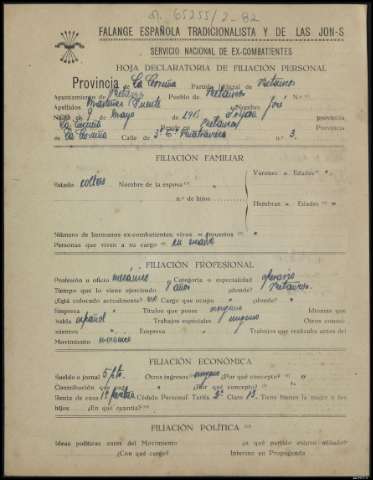 n. 65255/2-82
FALANGE ESPAÑOLA TRADICIONALISTA Y DE LAS JON-S
SERVICIO NACIONAL DE EX-COMBATIENTES
HOJA DECLARATORIA DE FILIACIÓN PERSONAL
Provincia de La Coruña Partido Judicial de Betanzos
Ayuntamiento de Betanzos Pueblo de Betanzos N.º
Apellidos Martínez Nombre José
Mayo de Provincia
La Coruña Betanzos, Provincia
La Coruña Calle de n.º 3.
FILIACIÓN FAMILIAR
Estado Nombre de la esposa " Varones " Edades "
n.º de hijos Hembras " Edades "
Número de hermanos ex-combatientes, vivos " muertos "
Personas que viven a su cargo " su madre
FILIACIÓN PROFESIONAL
Profesión u oficio mecánico Categoría o especialidad operario
Tiempo que lo viene ejerciendo 8 años ¿dónde? Betanzos.
¿Está colocado actualmente? Cargo que ocupa " ¿dónde?
Empresa " Títulos que posee ninguno Idioma que
habla español Trabajos especiales ninguno Otros conoci-
mientos " Empresa Trabajos que realizaba antes del
Movimiento mecánico
FILIACIÓN ECONÓMICA
Sueldo o jornal 5 pts. Otros ingresos ninguno ¿Por qué concepto? "
Contribución que ¿Por qué concepto?
Renta de casa Cédula Personal Tarifa 3ª Clase 13. Tiene bienes la mujer o los
hijos ¿En qué cuantía?
FILIACIÓN POLÍTICA
Ideas políticas antes del Movimiento ¿a qué partido estuvo afiliado?
¿Con qué cargo? Intervino en Propaganda